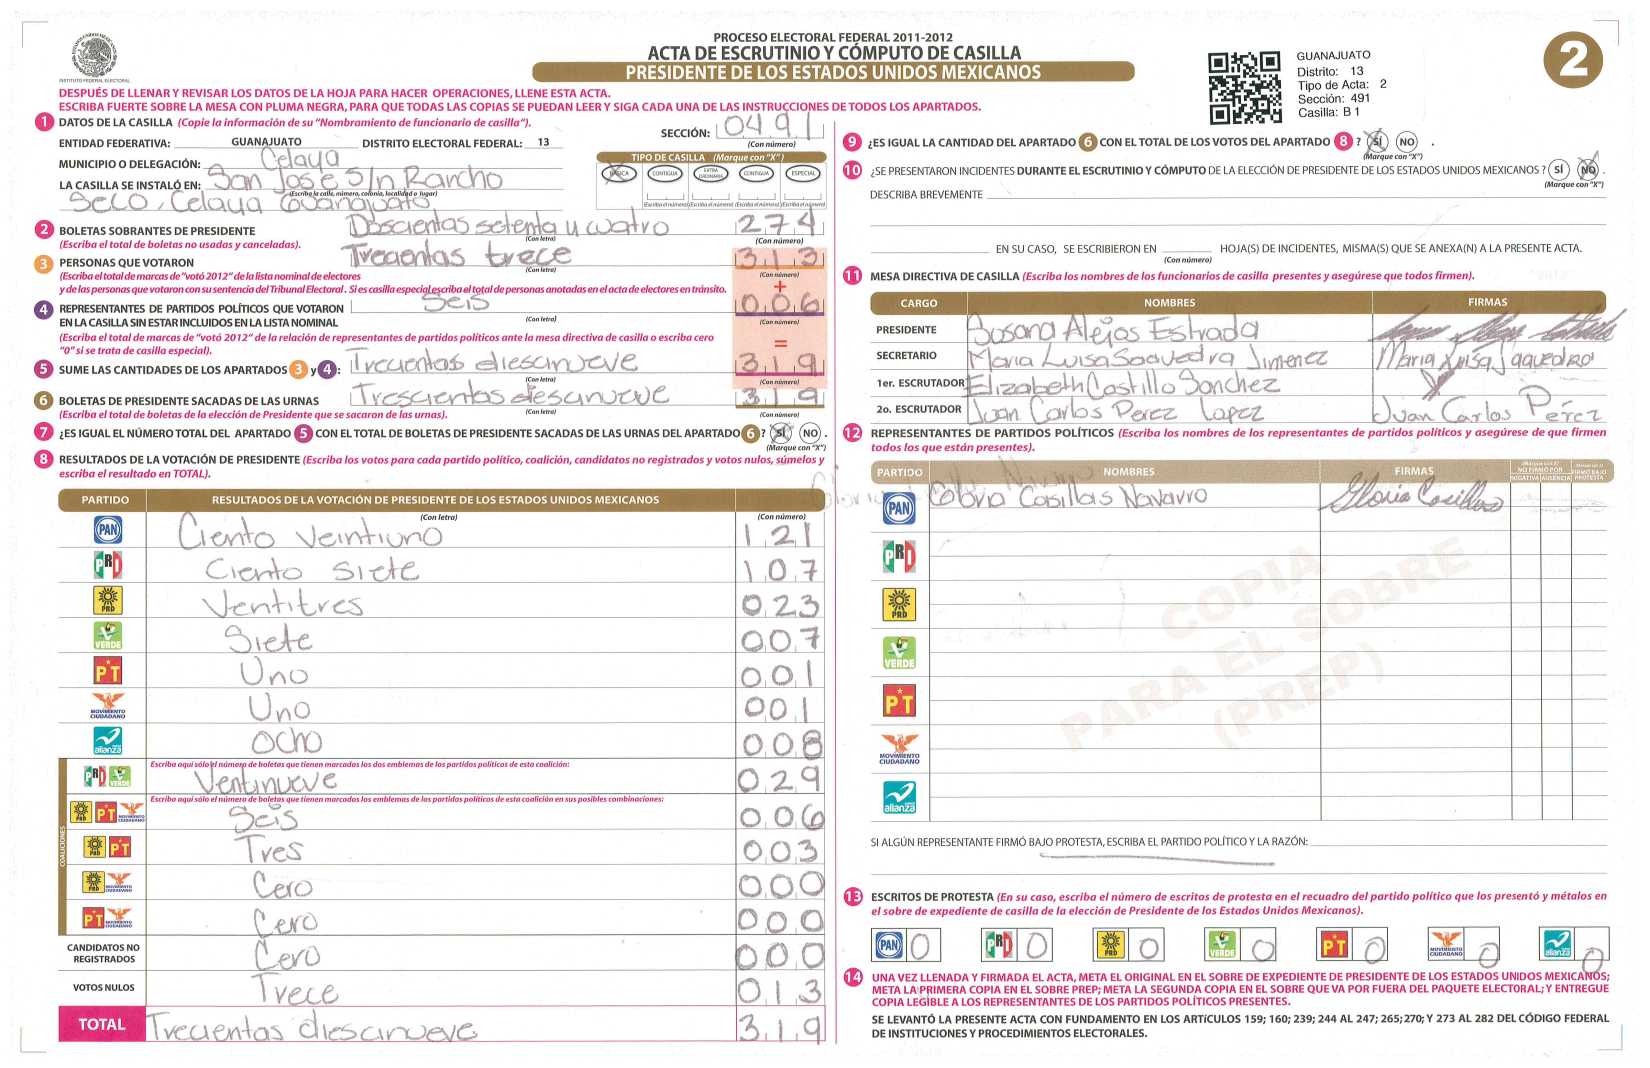 PROCESO ELECTORAL FEDERAL 2011-2012
ACTA DE ESCRUTINIO Y CÓMPUTO DE CASILLA
PRESIDENTE DE LOS ESTADOS UNIDOS MEXICANOS
INSTITUTO FEDERAL ELECTORAL
GUANAJUATO
Distrito: 13
Tipo de Acta: 2
Sección: 491
Casilla: B 1
2
DESPUÉS DE LLENAR Y REVISAR LOS DATOS DE LA HOJA PARA HACER OPERACIONES, LLENE ESTA ACTA.
ESCRIBA FUERTE SOBRE LA MESA CON PLUMA NEGRA, PARA QUE TODAS LAS COPIAS SE PUEDAN LEER Y SIGA CADA UNA DE LAS INSTRUCCIONES DE TODOS LOS APARTADOS.
1 DATOS DE LA CASILLA (Copie la información de su "Nombramiento de funcionario de casilla").
SECCIÓN: 0491
(Con número)
ENTIDAD FEDERATIVA: GUANAJUATO DISTRITO ELECTORAL FEDERAL: 13
MUNICIPIO O DELEGACIÓN: Celaya
LA CASILLA SE INSTALÓ EN: San Jose S/n Rancho
(Escriba la calle, número, colonia, localidad o lugar)
Seco, Celaya Guanajuato
TIPO DE CASILLA (Marque con "X")
BÁSICA CONTIGUA EXTRAORDINARIA CONTIGUA ESPECIAL
(Escriba el número) (Escriba el número) (Escriba el número) (Escriba el número)
2 BOLETAS SOBRANTES DE PRESIDENTE Doscientas setenta y cuatro 274
(Escriba el total de boletas no usadas y canceladas). (Con letra) (Con número)
3 PERSONAS QUE VOTARON Trecientas trece 313
(Con letra) (Con número)
(Escriba el total de marcas de "votó 2012" de la lista nominal de electores
y de las personas que votaron con su sentencia del Tribunal Electoral. Si es casilla especial escriba el total de personas anotadas en el acta de electores en tránsito.
+
4 REPRESENTANTES DE PARTIDOS POLÍTICOS QUE VOTARON Seis 006
EN LA CASILLA SIN ESTAR INCLUIDOS EN LA LISTA NOMINAL (Con letra) (Con número)
(Escriba el total de marcas de "votó 2012" de la relación de representantes de partidos políticos ante la mesa directiva de casilla o escriba cero
"0" si se trata de casilla especial).
=
5 SUME LAS CANTIDADES DE LOS APARTADOS 3 y 4: Trecientas diescinueve 319
(Con letra) (Con número)
6 BOLETAS DE PRESIDENTE SACADAS DE LAS URNAS Trescientas diescinueve 319
(Escriba el total de boletas de la elección de Presidente que se sacaron de las urnas). (Con letra) (Con número)
7 ¿ES IGUAL EL NÚMERO TOTAL DEL APARTADO 5 CON EL TOTAL DE BOLETAS DE PRESIDENTE SACADAS DE LAS URNAS DEL APARTADO 6 ? SÍ NO .
(Marque con "X")
8 RESULTADOS DE LA VOTACIÓN DE PRESIDENTE (Escriba los votos para cada partido político, coalición, candidatos no registrados y votos nulos, súmelos y
escriba el resultado en TOTAL).
PARTIDO RESULTADOS DE LA VOTACIÓN DE PRESIDENTE DE LOS ESTADOS UNIDOS MEXICANOS
(Con letra) (Con número)
PAN Ciento Veintiuno 121
PRI Ciento Siete 107
PRD Ventitres 023
VERDE Siete 007
PT Uno 001
MOVIMIENTO CIUDADANO Uno 001
alianza Ocho 008
COALICIONES
Escriba aquí sólo el número de boletas que tienen marcados los dos emblemas de los partidos políticos de esta coalición:
PRI VERDE Ventinueve 029
Escriba aquí sólo el número de boletas que tienen marcados los emblemas de los partidos políticos de esta coalición en sus posibles combinaciones:
PRD PT MOVIMIENTO CIUDADANO Seis 006
PRD PT Tres 003
PRD MOVIMIENTO CIUDADANO Cero 000
PT MOVIMIENTO CIUDADANO Cero 000
CANDIDATOS NO REGISTRADOS Cero 000
VOTOS NULOS Trece 013
TOTAL Trecuentas diescinueve 319
9 ¿ES IGUAL LA CANTIDAD DEL APARTADO 6 CON EL TOTAL DE LOS VOTOS DEL APARTADO 8 ? SÍ NO .
(Marque con "X")
10 ¿SE PRESENTARON INCIDENTES DURANTE EL ESCRUTINIO Y CÓMPUTO DE LA ELECCIÓN DE PRESIDENTE DE LOS ESTADOS UNIDOS MEXICANOS ? SÍ NO .
(Marque con "X")
DESCRIBA BREVEMENTE
EN SU CASO, SE ESCRIBIERON EN HOJA(S) DE INCIDENTES, MISMA(S) QUE SE ANEXA(N) A LA PRESENTE ACTA.
(Con número)
11 MESA DIRECTIVA DE CASILLA (Escriba los nombres de los funcionarios de casilla presentes y asegúrese que todos firmen).
CARGO NOMBRES FIRMAS
PRESIDENTE Susana Alejos Estrada
SECRETARIO Maria Luisa Saavedra Jimenez Maria Luisa
1er. ESCRUTADOR Elizabeth Castillo Sanchez
2o. ESCRUTADOR Juan Carlos Perez Lopez Juan Carlos Pérez
12 REPRESENTANTES DE PARTIDOS POLÍTICOS (Escriba los nombres de los representantes de partidos políticos y asegúrese de que firmen
todos los que están presentes).
PARTIDO NOMBRES FIRMAS
PAN Gloria Casillas Navarro Gloria Casillas
PRI
PRD
VERDE
PT
MOVIMIENTO CIUDADANO
alianza
COPIA
PARA EL SOBRE
(PREP)
SI ALGÚN REPRESENTANTE FIRMÓ BAJO PROTESTA, ESCRIBA EL PARTIDO POLÍTICO Y LA RAZÓN:
13 ESCRITOS DE PROTESTA (En su caso, escriba el número de escritos de protesta en el recuadro del partido político que los presentó y métalos en
el sobre de expediente de casilla de la elección de Presidente de los Estados Unidos Mexicanos).
PAN 0 PRI 0 PRD 0 VERDE 0 PT 0 MOVIMIENTO CIUDADANO 0 alianza 0
14 UNA VEZ LLENADA Y FIRMADA EL ACTA, META EL ORIGINAL EN EL SOBRE DE EXPEDIENTE DE PRESIDENTE DE LOS ESTADOS UNIDOS MEXICANOS;
META LA PRIMERA COPIA EN EL SOBRE PREP; META LA SEGUNDA COPIA EN EL SOBRE QUE VA POR FUERA DEL PAQUETE ELECTORAL; Y ENTREGUE
COPIA LEGIBLE A LOS REPRESENTANTES DE LOS PARTIDOS POLÍTICOS PRESENTES.
SE LEVANTÓ LA PRESENTE ACTA CON FUNDAMENTO EN LOS ARTÍCULOS 159; 160; 239; 244 AL 247; 265; 270; Y 273 AL 282 DEL CÓDIGO FEDERAL
DE INSTITUCIONES Y PROCEDIMIENTOS ELECTORALES.